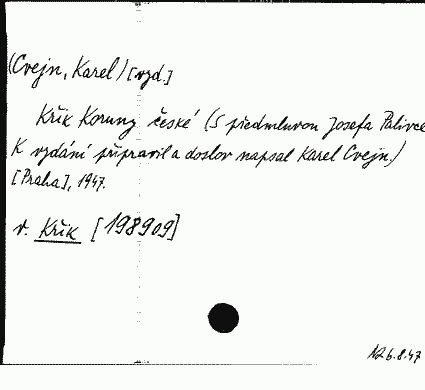 (Cvejn, Karel) [vyd.]
Křik Koruny české (S předmluvou Josefa Palivce
K vydání připravil a doslov napsal Karel Cvejn.)
[Praha], 1947.
v. Křik [198909]
6.8.47